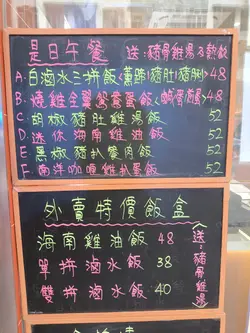 是日午餐 送:豬骨雞湯&熱飲
A.白滷水三拼飯<薰蹄/豬肚/豬脷>48
B.燒雞全翼鴛鴦蛋飯 48
C.胡椒豬肚雞湯飯 52
D.迷你海南雞油飯 52
E.黑椒豬扒餐肉飯 52
F.南洋咖喱雞扒蛋飯 52
外賣特價飯盒
海南雞油飯 48
單拼滷水飯 38
雙拼滷水飯 :40
<送豬骨雞湯>